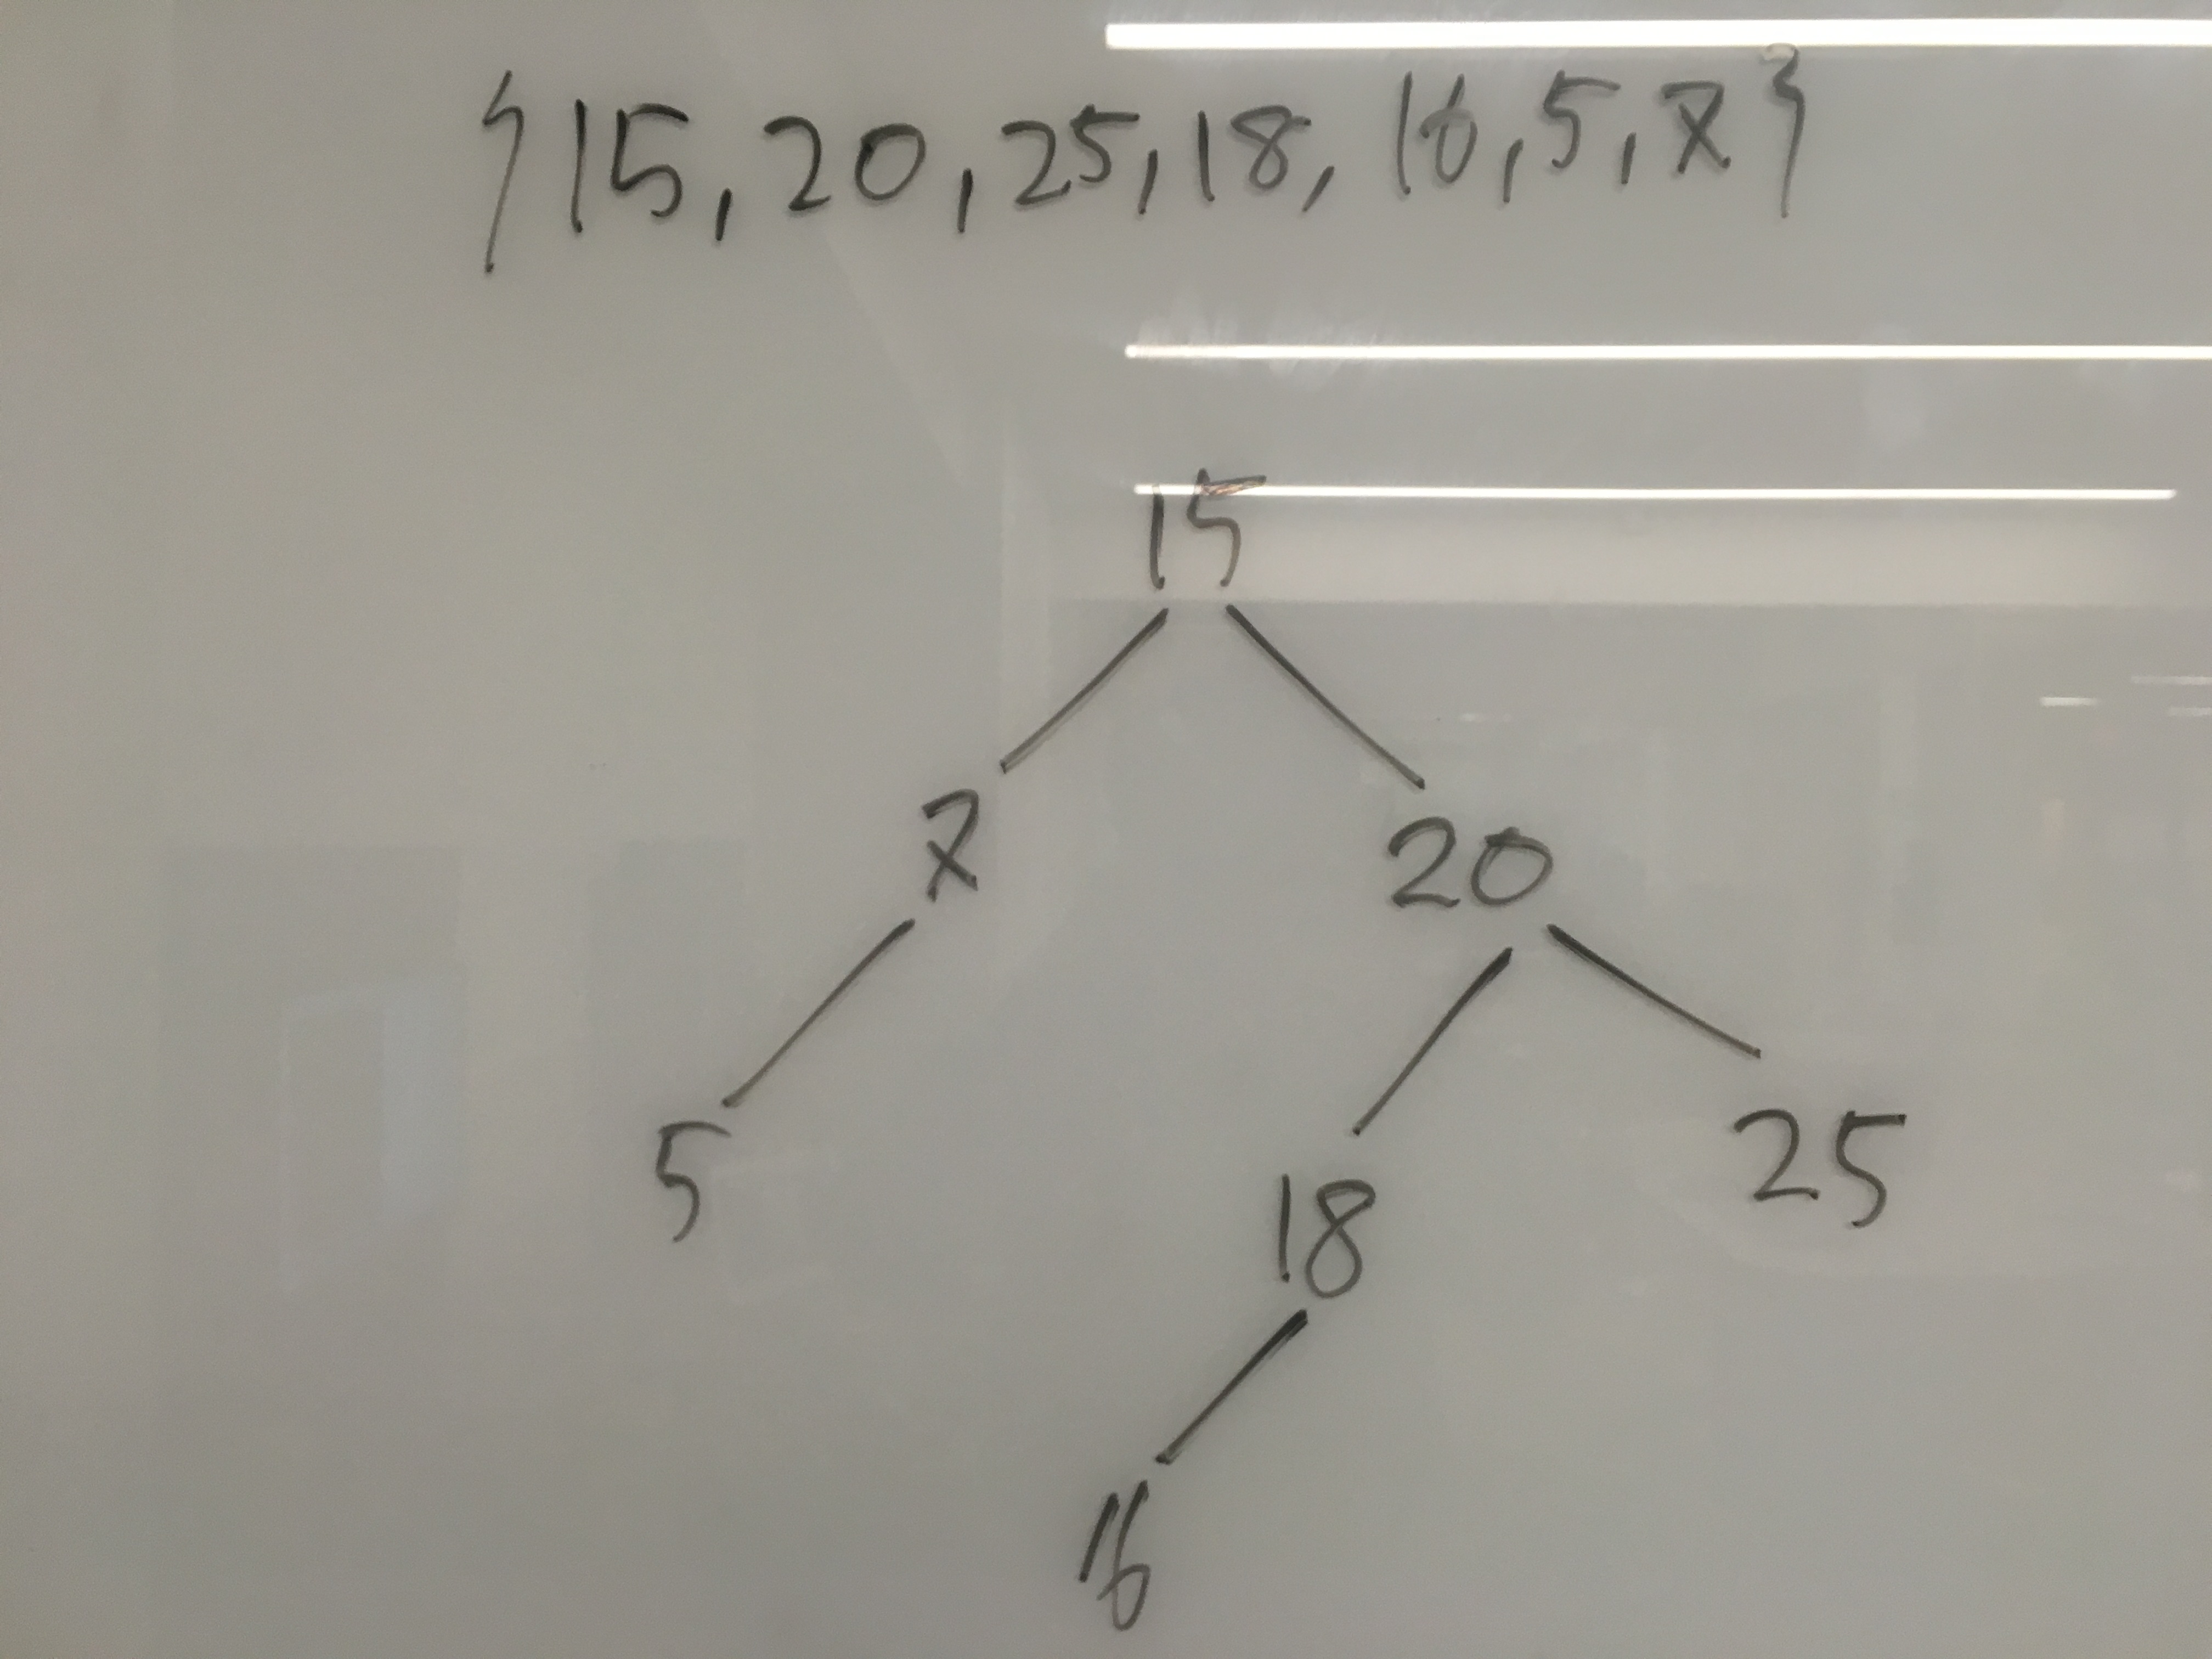 {15, 20, 25, 18, 16, 5, 7}
15
7 20
5 18 25
16